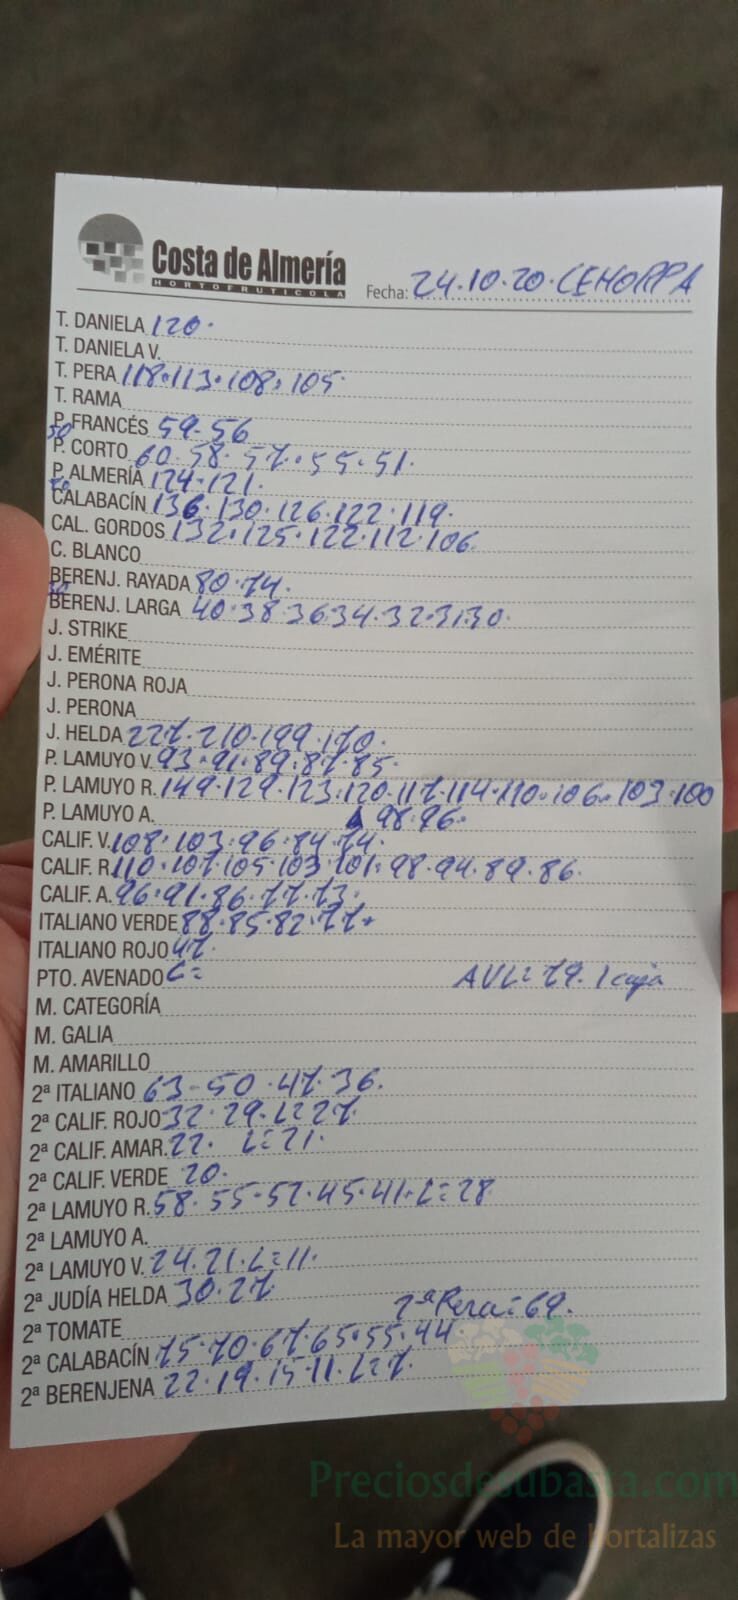 Costa de Almería
HORTOFRUTICOLA
Fecha: 24.10.20. CEHORPA
T. DANIELA 120.
T. DANIELA V.
T. PERA 118.113.108.105.
T. RAMA
P. FRANCÉS 59.56
50
P. CORTO 60.58.57.55.51.
P. ALMERÍA 124.121.
CALABACÍN 136.130.126.122.119.
CAL. GORDOS 132.125.122.112.106.
C. BLANCO
BERENJ. RAYADA 80.74.
30
BERENJ. LARGA 40.38.36.34.32.31.30.
J. STRIKE
J. EMÉRITE
J. PERONA ROJA
J. PERONA
J. HELDA 227.210.199.170.
P. LAMUYO V. 93.91.89.87.85.
P. LAMUYO R. 149.129.123.120.117.114.110.106.103.100
P. LAMUYO A. 98.96.
CALIF. V. 108.103.96.84.74.
CALIF. R. 110.107.105.103.101.98.94.89.86.
CALIF. A. 96.91.86.77.73.
ITALIANO VERDE 88.85.82.77.
ITALIANO ROJO 47.
PTO. AVENADO L= AVL=79.1 caja
M. CATEGORÍA
M. GALIA
M. AMARILLO
2ª ITALIANO 63-50.47.36.
2ª CALIF. ROJO 32.29.L=27.
2ª CALIF. AMAR. 22. L=21.
2ª CALIF. VERDE 20.
2ª LAMUYO R. 58.55.52.45.41.L=28
2ª LAMUYO A.
2ª LAMUYO V. 24.21.L=11.
2ª JUDÍA HELDA 30.27.
2ª TOMATE 2ª Pera=69.
2ª CALABACÍN 75.70.67.65.55.44
2ª BERENJENA 22.19.15.11.L=7.
Preciosdesubasta.com
La mayor web de hortalizas